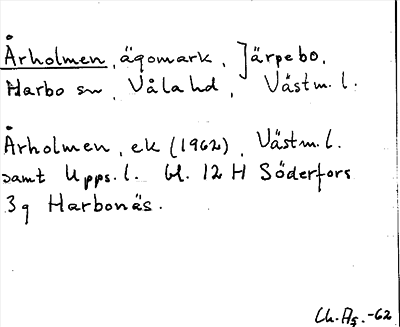 Årholmen, ägomark, Järpebo,
Harbo sn, Våla hd, Västm. l.
Årholmen, ek (1962), Västm. l.
samt Upps. l. bl. 12 H Söderfors
3g Harbonäs.
Ch. Ag. -62